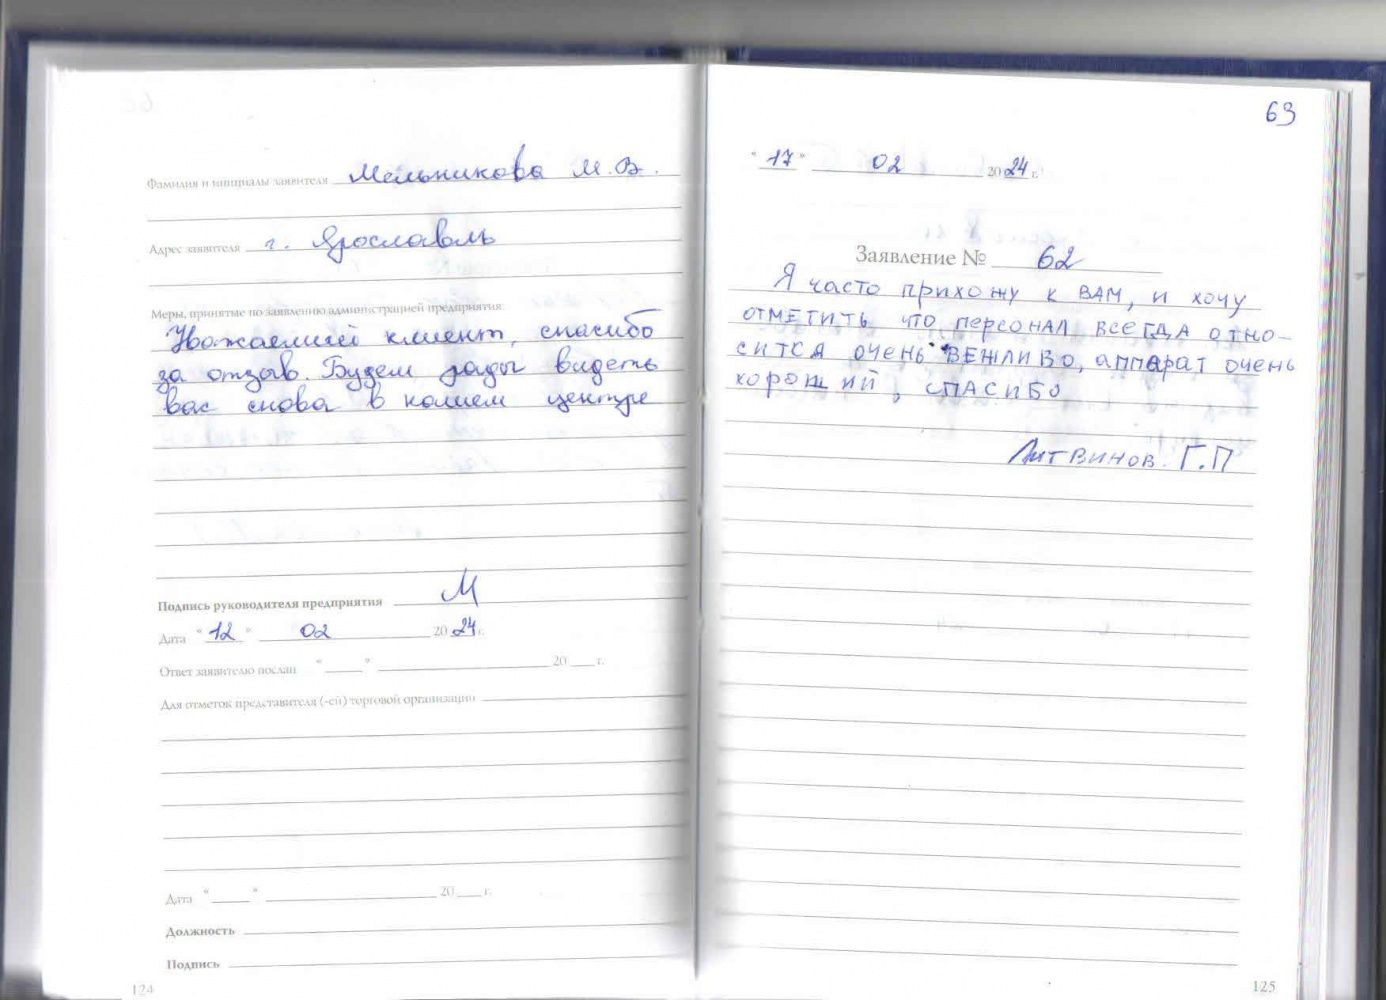 Фамилия и инициалы заявителя Мельникова М.В.
Адрес заявителя г. Ярославль
Меры, принятые по заявлению администрацией предприятия:
Уважаемый клиент, спасибо
за отзыв. Будем рады видеть
вас снова в нашем центре
Подпись руководителя предприятия М
Дата "12" 02 2024 г.
Ответ заявителю послан "___" ___ 20___ г.
Для отметок представителя (-ей) торговой организации
Дата "___" ___ 20___ г.
Должность
Подпись
124
63
"17" 02 2024 г.
Заявление № 62
Я часто прихожу к ВАМ, и хочу
отметить что персонал всегда отно-
сится очень вежливо, аппарат очень
хороший, спасибо
Литвинов. Г.П
125